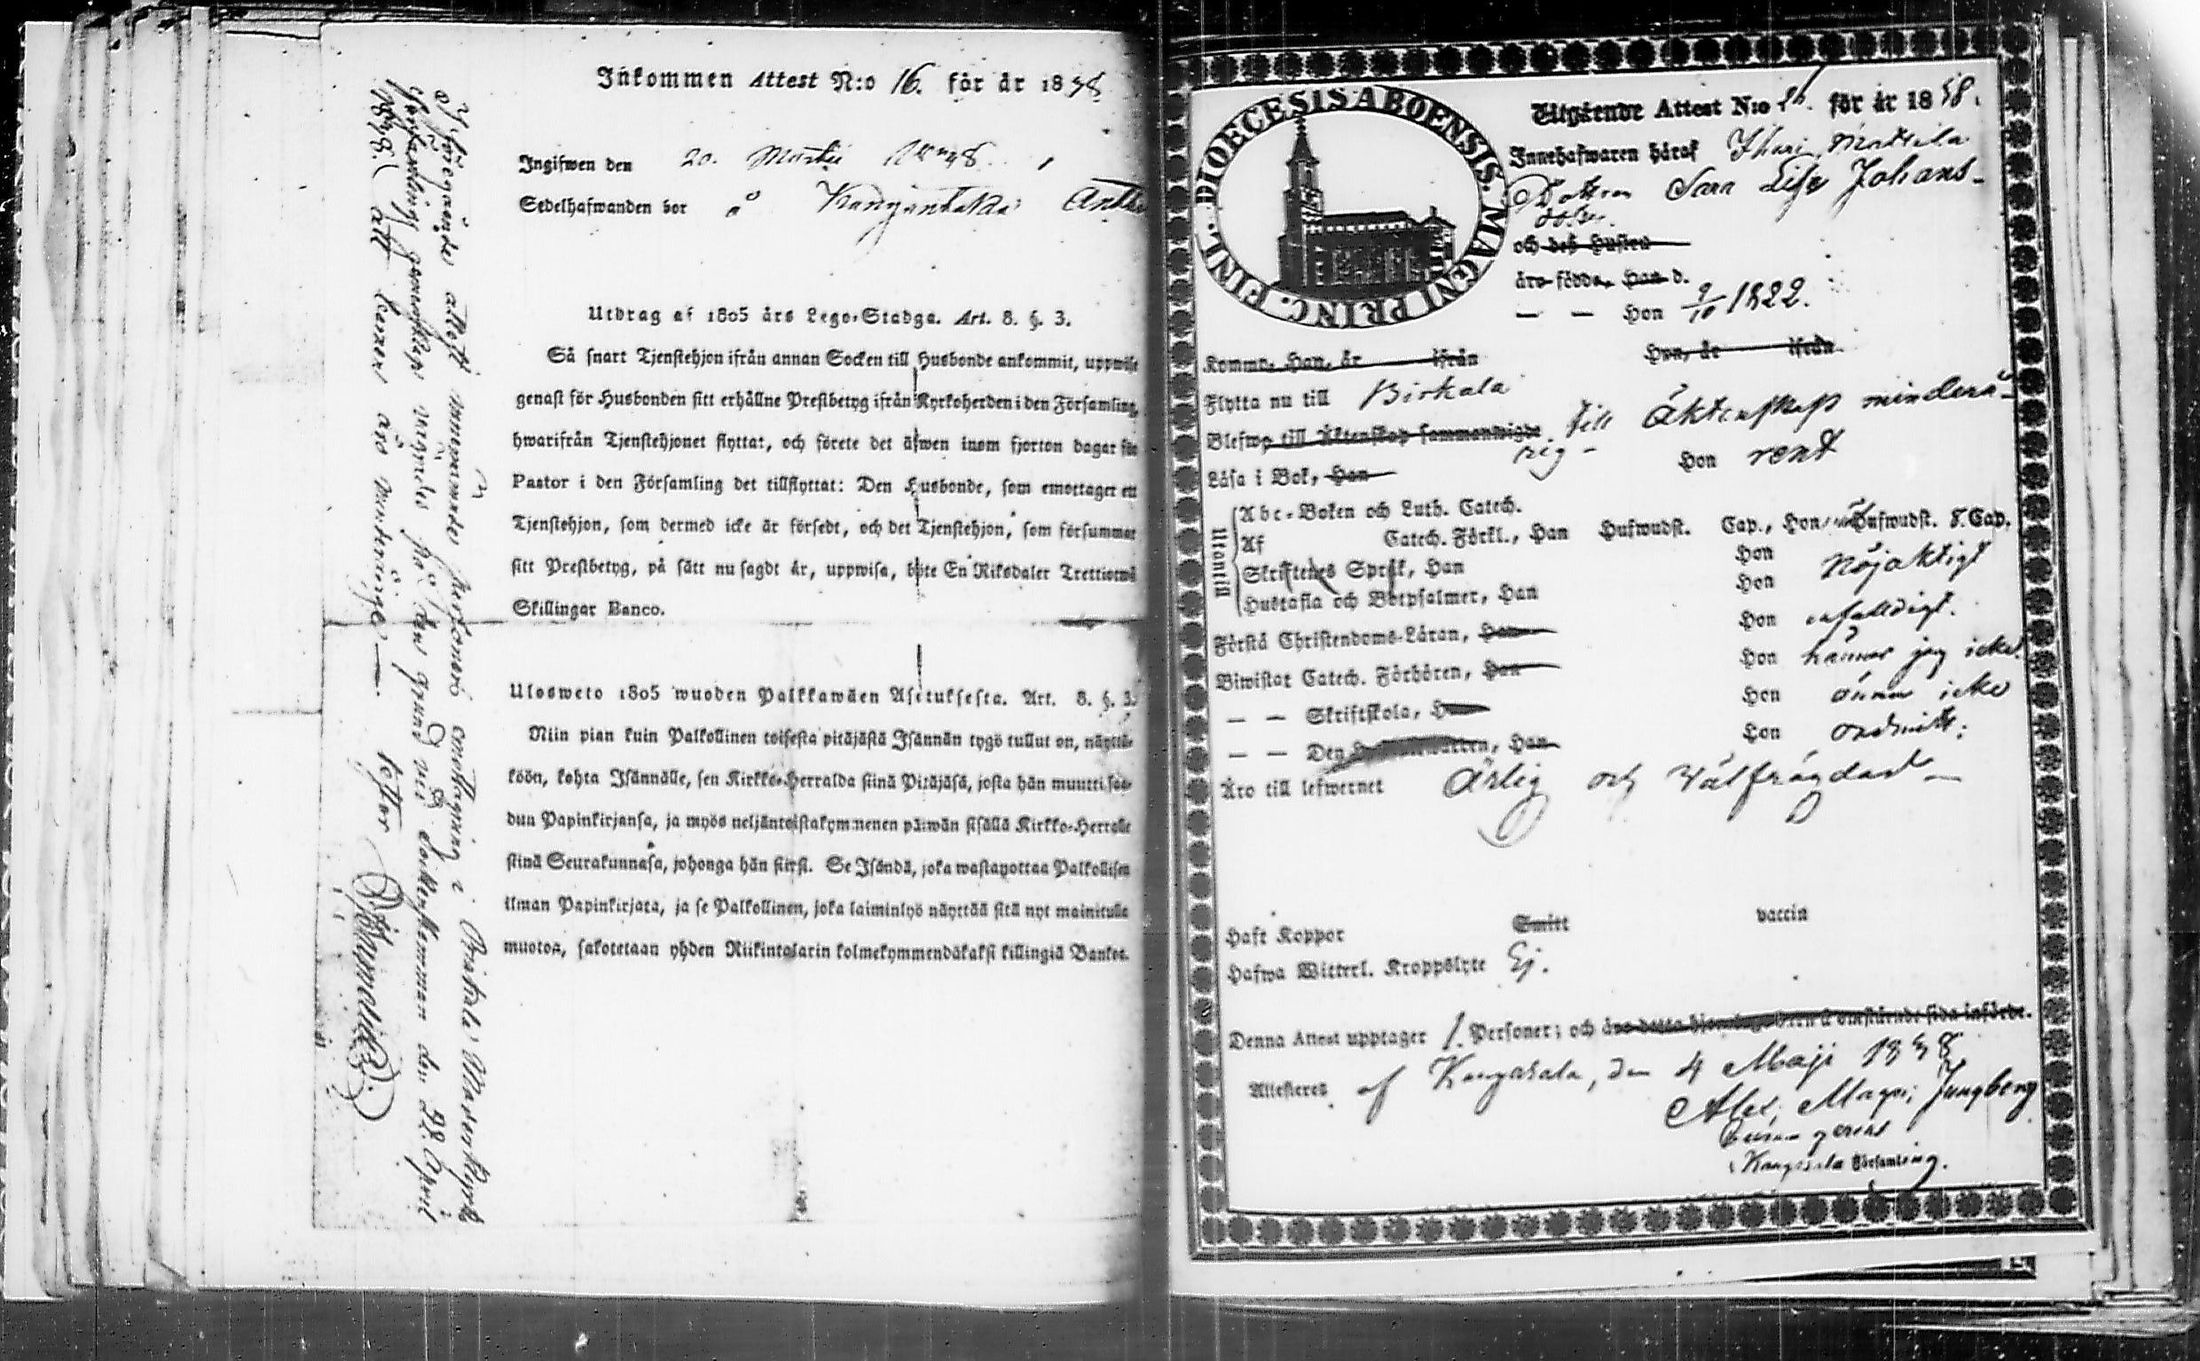 Inkommen Attest N:o 16. för år 1838.
Ingifwen den 20. Martii 1838.
Sedelhafwanden bor å
Utdrag af 1805 års Lego-Stadga. Art. 8. §. 3.
Så snart Tjenstehjon ifrån annan Socken till Husbonde ankommit, uppwise
genast för Husbonden sitt erhållne Prestbetyg ifrån Kyrkoherden i den Församling,
hwarifrån Tjenstehjonet flyttat, och förete det äfwen inom fjorton dagar för
Pastor i den Församling det tillflyttat: Den Husbonde, som emottager ett
Tjenstehjon, som dermed icke är försedt, och det Tjenstehjon, som försummar
sitt Prestbetyg, på sätt nu sagdt är, uppwisa, böte En Riksdaler Trettiotwå
Skillingar Banco.
Ulosweto 1805 wuoden Palkkawäen Asetuksesta. Art. 8. §. 3.
Niin pian kuin Palkollinen toisesta pitäjästä Isännän tygö tullut on, näyttä-
köön, kohta Isännälle, sen Kirkko-Herralda siinä Pitäjäsä, josta hän muutti, saa-
dun Papinkirjansa, ja myös neljäntoistakymmenen päiwän sisällä Kirkko-Herralle
siinä Seurakunnasa, johonga hän siirsi. Se Isändä, joka wastaƞottaa Palkollisen
ilman Papinkirjata, ja se Palkollinen, joka laiminlyö näyttää sitä nyt mainitulla
muotoa, sakotetaan yhden Riikintalarin kolmekymmendäkaksi killingiä Bankos.
å föregående attest omnämnde personers emottagning i Birkala Moderkyrko
Församling på den grund wid Sockenstemman den 22. April
1838. att
DIOECESIS ABOENSIS. MAGNI PRINC. FINL.
Utgående Attest N:o för år 1838.
Innehafwaren häraf
Dottren Sara Lisa Johans-
dotter
och dess Hustru
äro födde, Han d.
— — Hon 9/10 1822.
Komme, Han, år ifrån Hon, år ifrån
Flytta nu till Birkala
Blefwo till Äktenskap sammanwigde till äktenskap minderå-
rig -
Läsa i Bok, Han Hon rent
Utantill
Abc-Boken och Luth. Catech.
Af Catech. Förkl., Han Hufwudst. Cap., Hon Hufwudst. 8. Cap.
Skriftenes Språk, Han Hon
Hustafla och Botpsalmer, Han Hon nöjaktigt
Förstå Christendoms-Läran, Han Hon enfalldigt.
Biwistat Catech. Förhören, Han Hon känner jag icke.
— — Skriftskola, Han Hon ännu icke
— — Den Han Hon oadmitt:
Äro till lefwernet Ärlig och Wälfrägdad —
Haft Koppor Smitt vaccin
Hafwa Witterl. Kroppslyte Ej.
Denna Attest upptager 1. Personer; och äro detta hjonelags barn å omstående sida införde.
Attesteres af Kangasala, den 4 Maji 1838
Alex. Magn: Jungberg
Kangasala Församling.